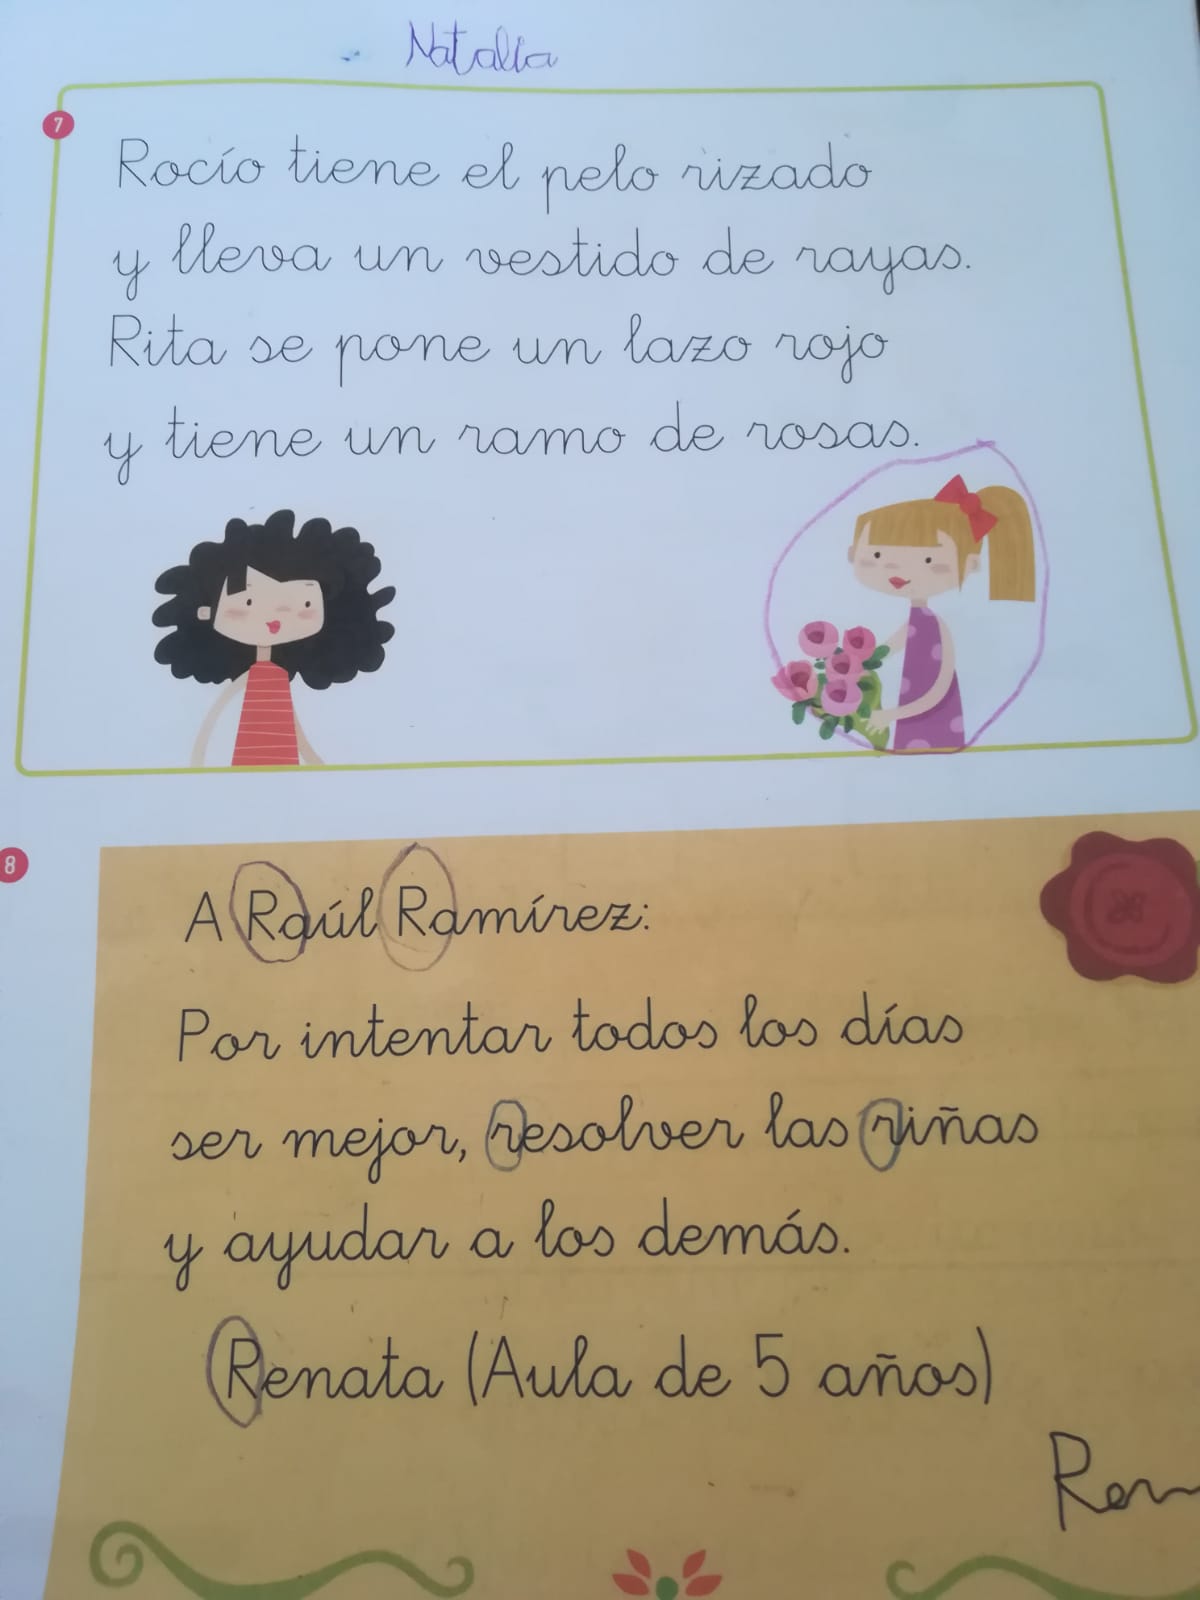 Natalia
7
Rocío tiene el pelo rizado
y lleva un vestido de rayas.
Rita se pone un lazo rojo
y tiene un ramo de rosas.
8
A Raúl Ramírez:
Por intentar todos los días
ser mejor, resolver las riñas
y ayudar a los demás.
Renata (Aula de 5 años)